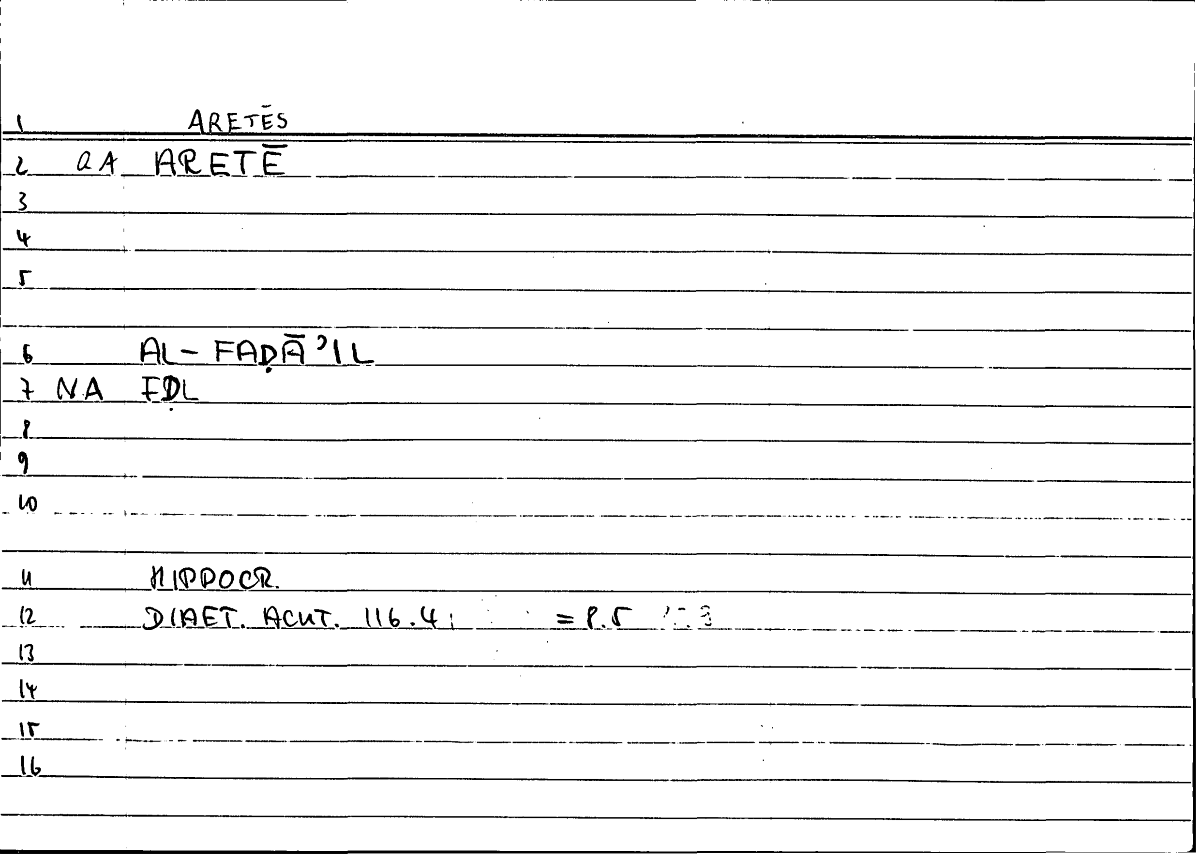 1 ARETĒS
2 aA ARETĒ
3
4
5
6 AL-FAḌĀʾIL
7 NA FḌL
8
9
10
11 HIPPOCR.
12 DIAET. ACUT. 116.4; = 8.5
13
14
15
16